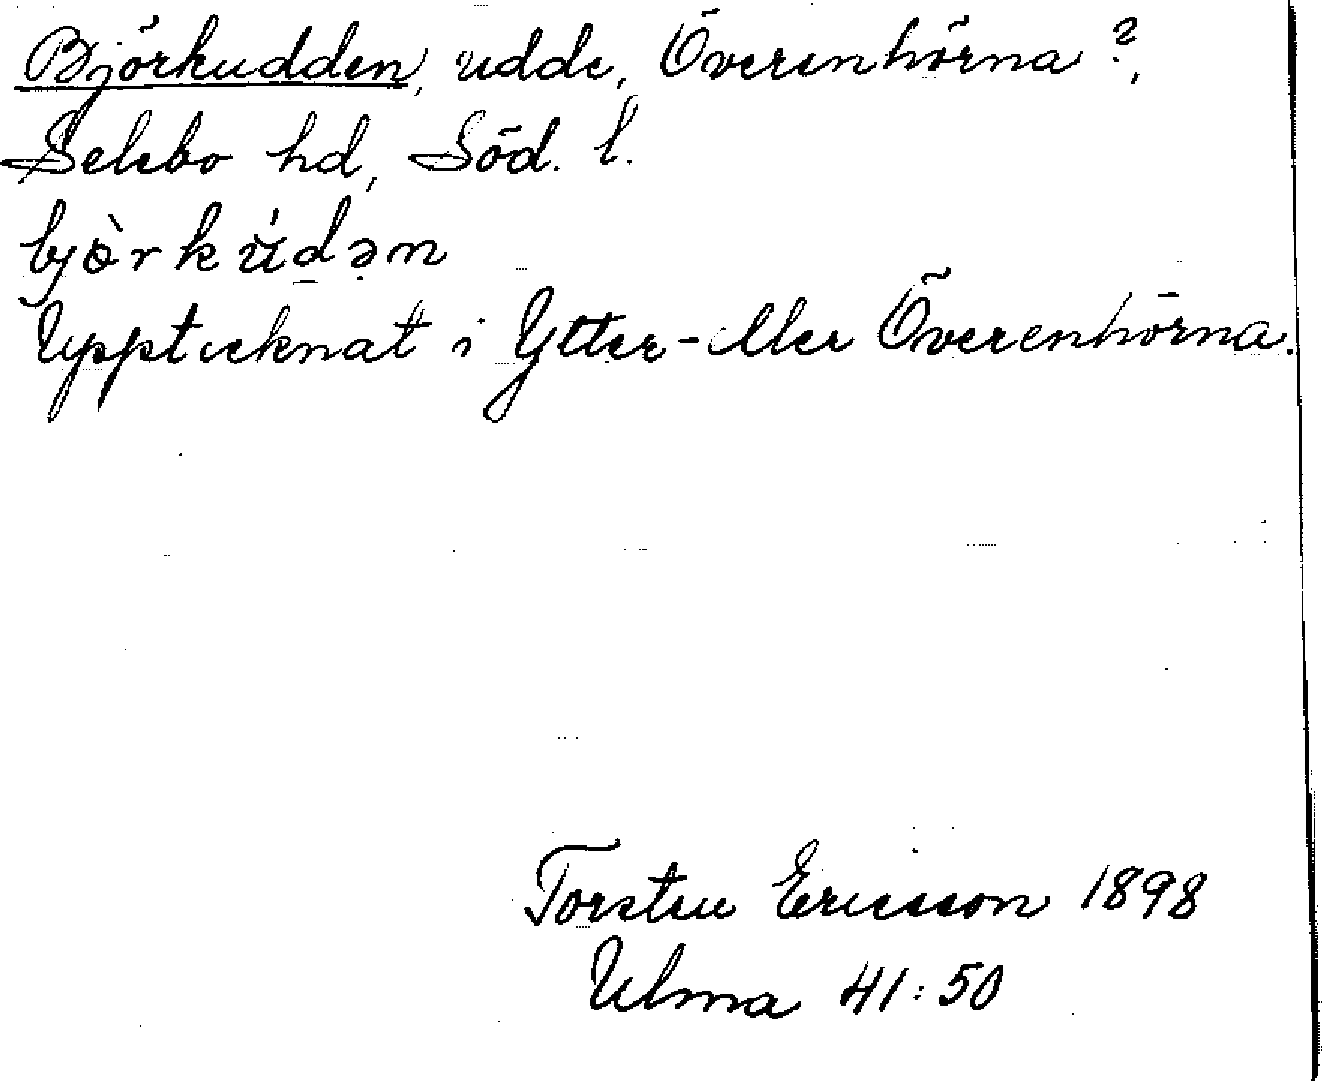 Björkudden, udde, Överenhörna?,
Selebo hd, Söd. l.
bjö̀rkúdən
Upptecknat i Ytter- eller Överenhörna.
Torsten Ericsson 1898
Ulma 41:50